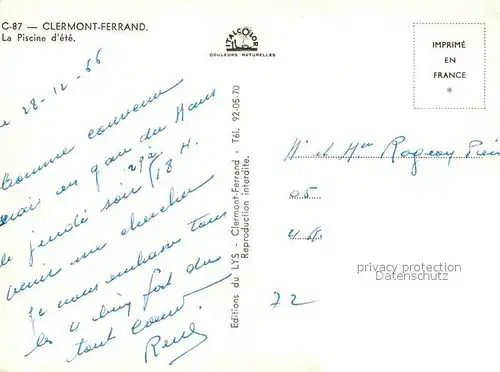 C-87 — CLERMONT-FERRAND.
La Piscine d'été.
28-12-66
Comme convenu
en gare du Mans
jeudi soir 18 H.
venir me chercher
je vous embrasse tous
les 4 bien fort de
tout coeur
René.
ITALCOLOR
COULEURS NATURELLES
Editions du LYS - Clermont-Ferrand - Tél. 92-05-70
Reproduction interdite.
IMPRIMÉ
EN
FRANCE
*
et
72
privacy protection watermark